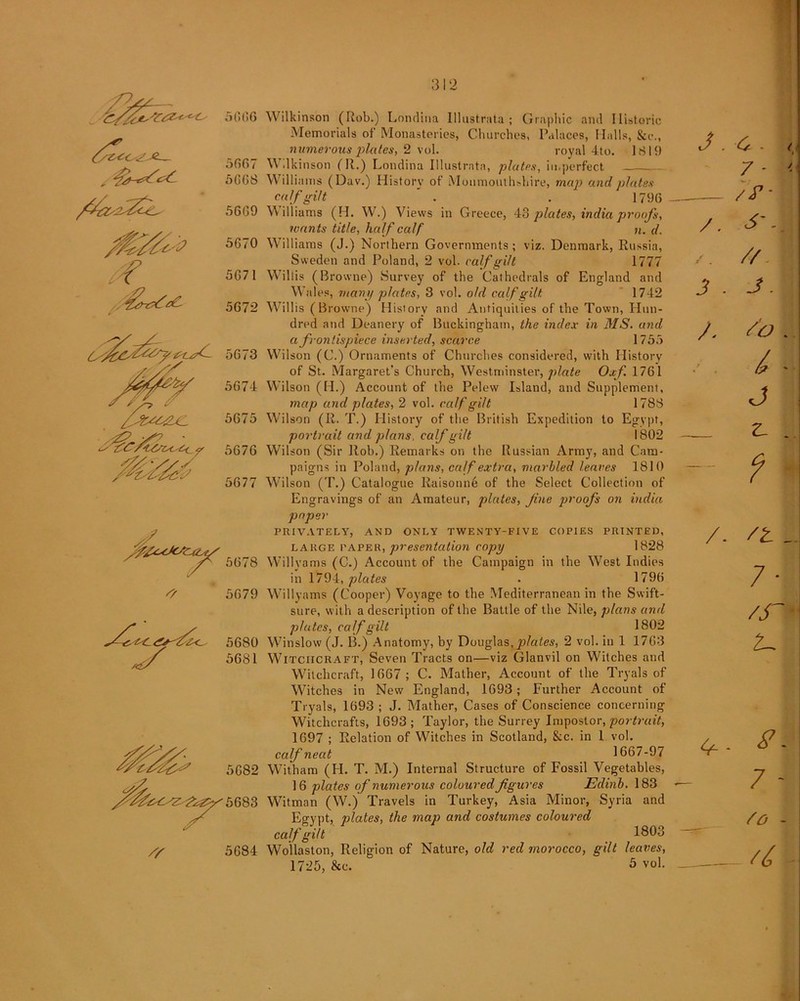 312
5666 Wilkinson (Rob.) Londina Illustrata ; Graphic and Historic
Memorials of Monasteries, Churches, Palaces, Halls, &c.,
numerous plates, 2 vol. royal 4to. 1819
3 . 4 -
5667 Wilkinson (R.) Londina Illustrata, plates, imperfect
7 -
5668 Williams (Dav.) History of Monmouthshire, map and plates
calf gilt . . 1796
5669 Williams (H. W.) Views in Greece, 43 plates, india proofs,
wants title, half calf n. d.
5670 Williams (J.) Northern Governments ; viz. Denmark, Russia,
Sweden and Poland, 2 vol. calf gilt 1777
5671 Willis (Browne) Survey of the Cathedrals of England and
Wales, many plates, 3 vol. old calf gilt 1742
3 . 3 .
5672 Willis (Browne) History and Antiquities of the Town, Hun-
dred and Deanery of Buckingham, the index in MS. and
a frontispiece inserted, scarce 1755
5673 Wilson (C.) Ornaments of Churches considered, with History
of St. Margaret's Church, Westminster, plate Oxf. 1761
5674 Wilson (H.) Account of the Pelew Island, and Supplement,
map and plates, 2 vol. calf gilt 1788
3
5675 Wilson (R. T.) History of the British Expedition to Egypt,
portrait and plans, calf gilt 1802
5676 Wilson (Sir Rob.) Remarks on the Russian Army, and Cam-
paigns in Poland, plans, calf extra, marbled leaves 1810
9
5677 Wilson (T.) Catalogue Raisonné of the Select Collection of
Engravings of an Amateur, plates, fine proofs on india
paper
PRIVATELY, AND ONLY TWENTY-FIVE COPIES PRINTED,
LARGE PAPER, presentation copy 1828
5678 Willyams (C.) Account of the Campaign in the West Indies
in 1794, plates . 1796
7 -
5679 Willyams (Cooper) Voyage to the Mediterranean in the Swift-
sure, with a description of the Battle of the Nile, plans and
plates, calf gilt 1802
15
5680 Winslow (J. B.) Anatomy, by Douglas, plates, 2 vol. in 1 1763
5681 WITCHCRAFT, Seven Tracts on—viz Glanvil on Witches and
Witchcraft, 1667 ; C. Mather, Account of the Tryals of
Witches in New England, 1693 ; Further Account of
Tryals, 1693 ; J. Mather, Cases of Conscience concerning
Witchcrafts, 1693 ; Taylor, the Surrey Impostor, portrait,
1697 ; Relation of Witches in Scotland, &c. in 1 vol.
calf neat 1667-97
4 - 8 -
5682 Witham (H. T. M.) Internal Structure of Fossil Vegetables,
16 plates of numerous coloured figures Edinb. 183
7 -
5683 Witman (W.) Travels in Turkey, Asia Minor, Syria and
Egypt, plates, the map and costumes coloured
calf gilt 1803
10 -
5684 Wollaston, Religion of Nature, old red morocco, gilt leaves,
1725, &c. 5 vol.